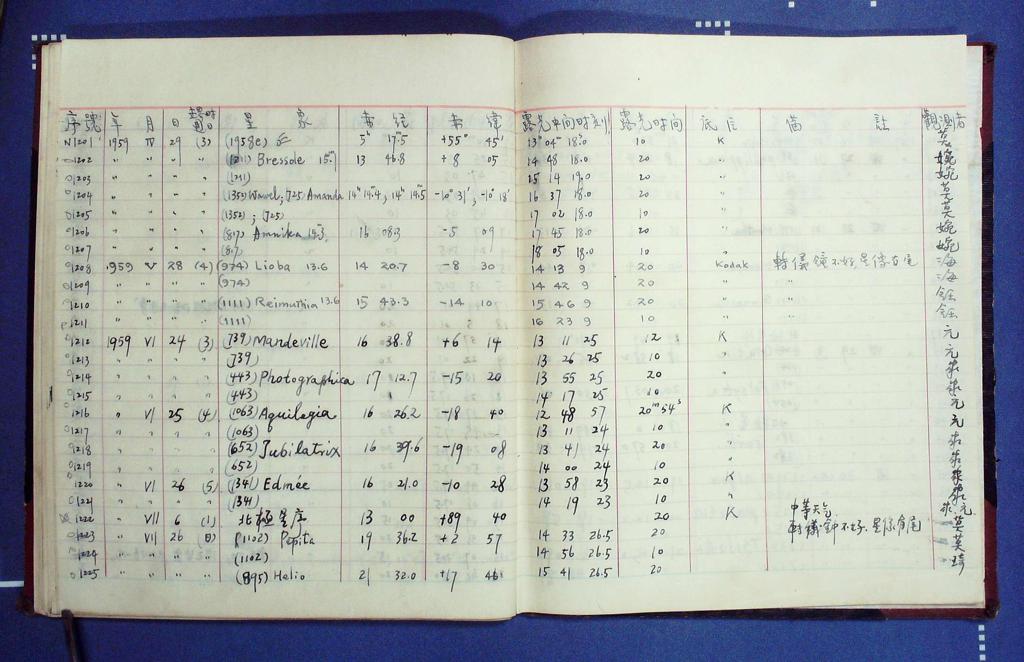 序號 年 月 日 星期 星 象 赤 經 赤 緯 露光中间时刻 露光时间 底 片 備 註 觀測者
N1201 1959 IV 29 (3) (1958e) 5h 17m.5 +55° 45' 13h 04m 18s.0 10 K
1202 " " " " (1211) Bressole 15m.7 13 46.8 +8 05 14 48 18.0 20 " 婉
1203 " " " " (1211) 15 14 19.0 20 " 婉
1204 " " " " (1352) Wawel; (725) Amanda 14h 14m.4, 14h 14m.5 -10° 31', -10° 18' 16 37 18.0 20 " 莫
1205 " " " " (1352); (725) 17 02 18.0 10 " 莫
1206 " " " " (817) Annika 14.3 16 08.3 -5 09 17 45 18.0 20 " 婉
1207 " " " " (817) 18 05 18.0 10 " 婉
1208 1959 V 28 (4) (974) Lioba 13.6 14 20.7 -8 30 14 13 9 20 Kodak 海
1209 " " " " (974) 14 42 9 20 " " 海
1210 " " " " (1111) Reimuthia 13.6 15 43.3 -14 10 15 46 9 20 " "
1211 " " " " (1111) 16 23 9 10 " "
1212 1959 VI 24 (3) (739) Mandeville 16 38.8 +6 14 13 11 25 12 K 元
1213 " " " " (739) 13 26 25 10 " 元
1214 " " " " (443) Photographica 17 12.7 -15 20 13 55 25 20 "
1215 " " " " (443) 14 17 25 10 "
1216 " VI 25 (4) (1063) Aquilegia 16 26.2 -18 40 12 48 57 20m 54s K 元
1217 " " " " (1063) 13 11 24 10 " 元
1218 " " " " (652) Jubilatrix 16 39.6 -19 08 13 41 24 20 "
1219 " " " " (652) 14 00 24 10 "
1220 " VI 26 (5) (1341) Edmée 16 21.0 -10 28 13 58 23 20 K
1221 " " " " (1341) 14 19 23 10 "
1222 " VII 6 (1) 北極星座 13 00 +89 40 20 K 中等天气 元
1223 " VII 26 (日) (1102) Pepita 19 36.2 +2 57 14 33 26.5 20 莫
1224 " " " " (1102) 14 56 26.5 10 莫
1225 " " " " (895) Helio 21 32.0 +17 46 15 41 26.5 20 琦